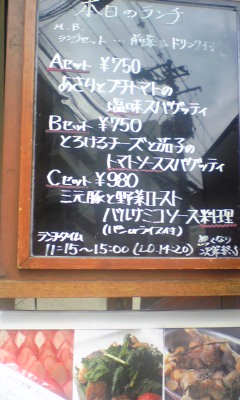 本日のランチ
ランチセット… 前菜 ドリンク付
Aセット ¥750
あさりとプチトマトの
塩味スパゲッティ
Bセット ¥750
とろけるチーズと茄子の
トマトソーススパゲッティ
Cセット ¥980
三元豚と野菜ロースト
バルサミコソース料理
(パン or ライス付)
ランチタイム
11:15〜15:00 (L.O. 14:20)
無くなり